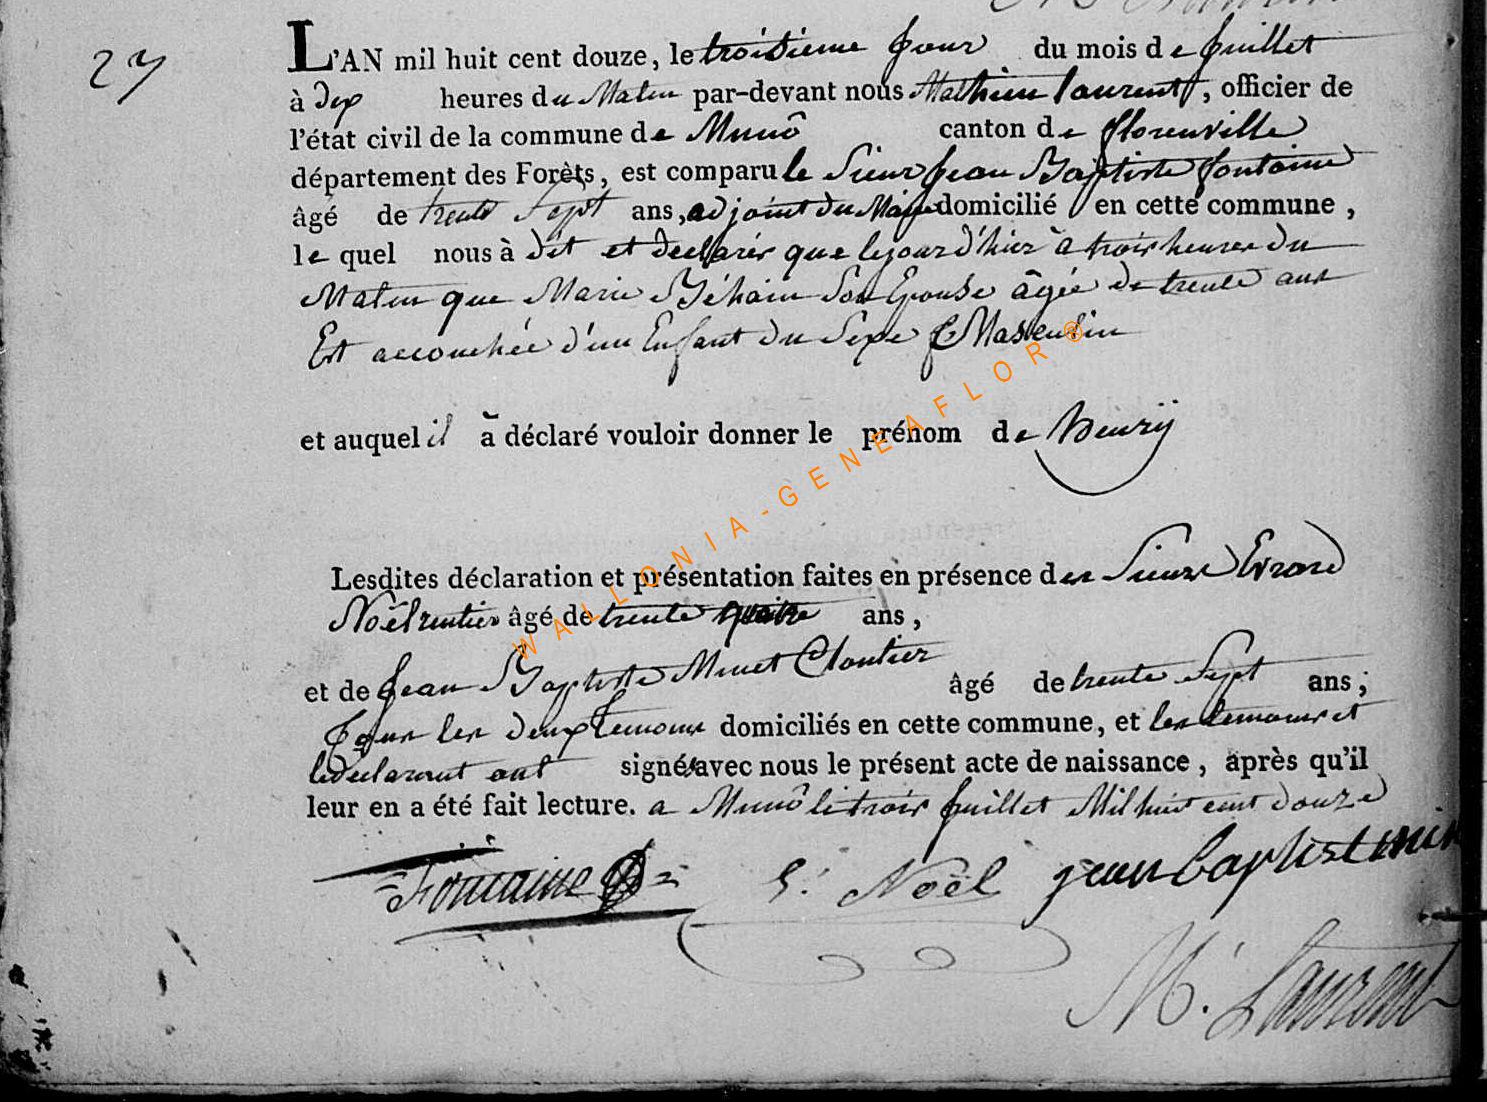 27
L'AN mil huit cent douze, le troisieme jour du mois de juillet
à dix heures du Matin par-devant nous Mathieu laurent, officier de
l'état civil de la commune de Munô canton de florenville
département des Forêts, est comparu le Sieur jean Baptiste fontaine
âgé de trente Sept ans, adjoint du Maire domicilié en cette commune,
le quel nous à dit et declarér que le jour d'hier à trois heures du
Matin que Marie Béhain Son Epouse âgée de trente ans
Est accouchée d'un Enfant du Sexe Masculin
et auquel il à déclaré vouloir donner le prénom de henrÿ
Lesdites déclaration et présentation faites en présence des Sieurs Evrard
Noël rentier âgé de trente quatre ans,
et de jean Baptiste Minet Cloutier âgé de trente Sept ans,
tous les deux temoins domiciliés en cette commune, et les temoins et
le declarant ont signés avec nous le présent acte de naissance, après qu'il
leur en a été fait lecture. a Munô le trois juillet Mil huit cent douze
Fontaine E. Noël jean baptist
M. Laurent
WALLONIA-GENEAFLOR®